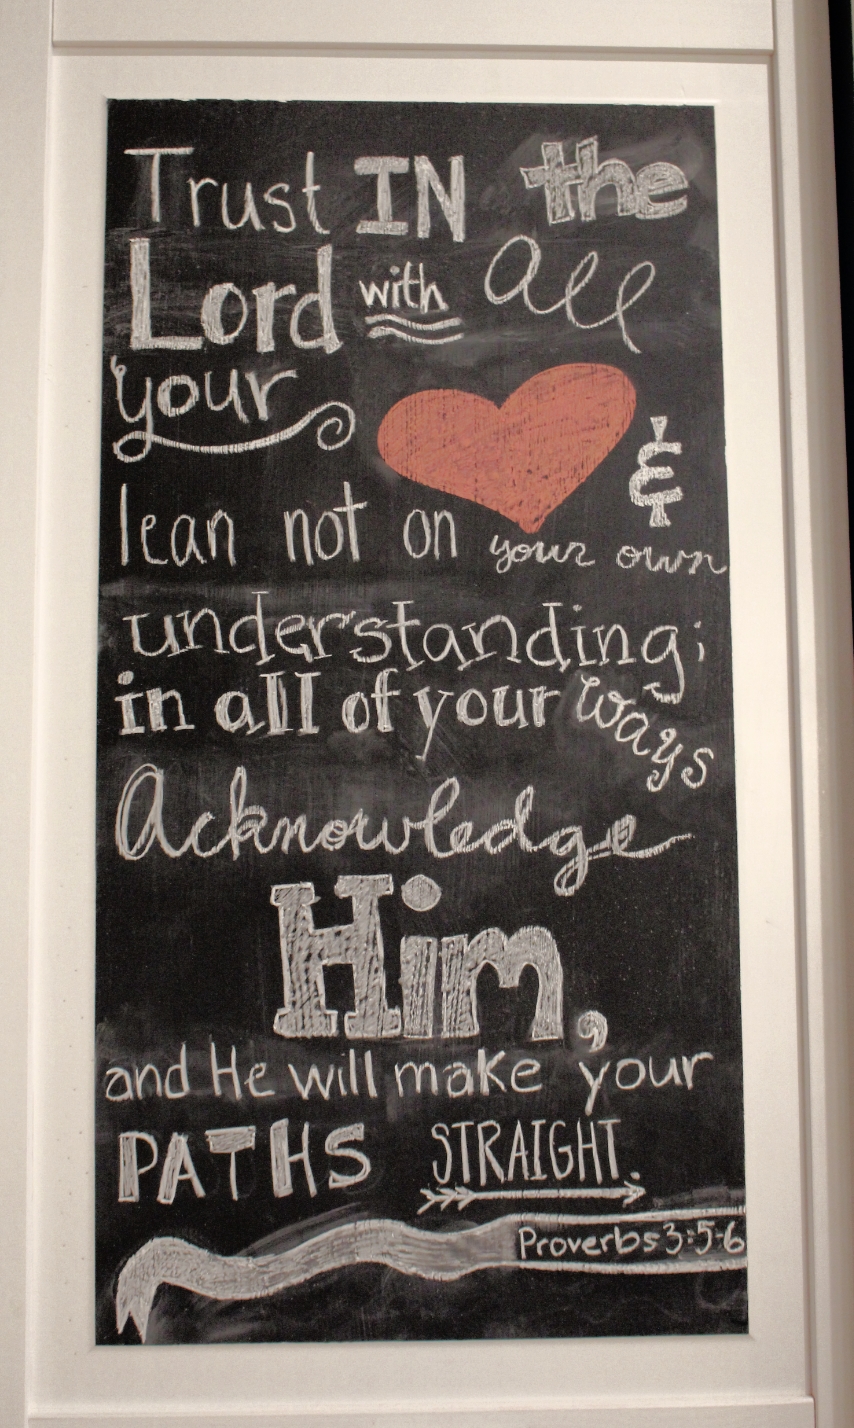 Trust IN the
Lord with all
your ❤ &
lean not on your own
understanding;
in all of your ways
Acknowledge
Him,
and He will make your
PATHS STRAIGHT.
Proverbs 3:5-6